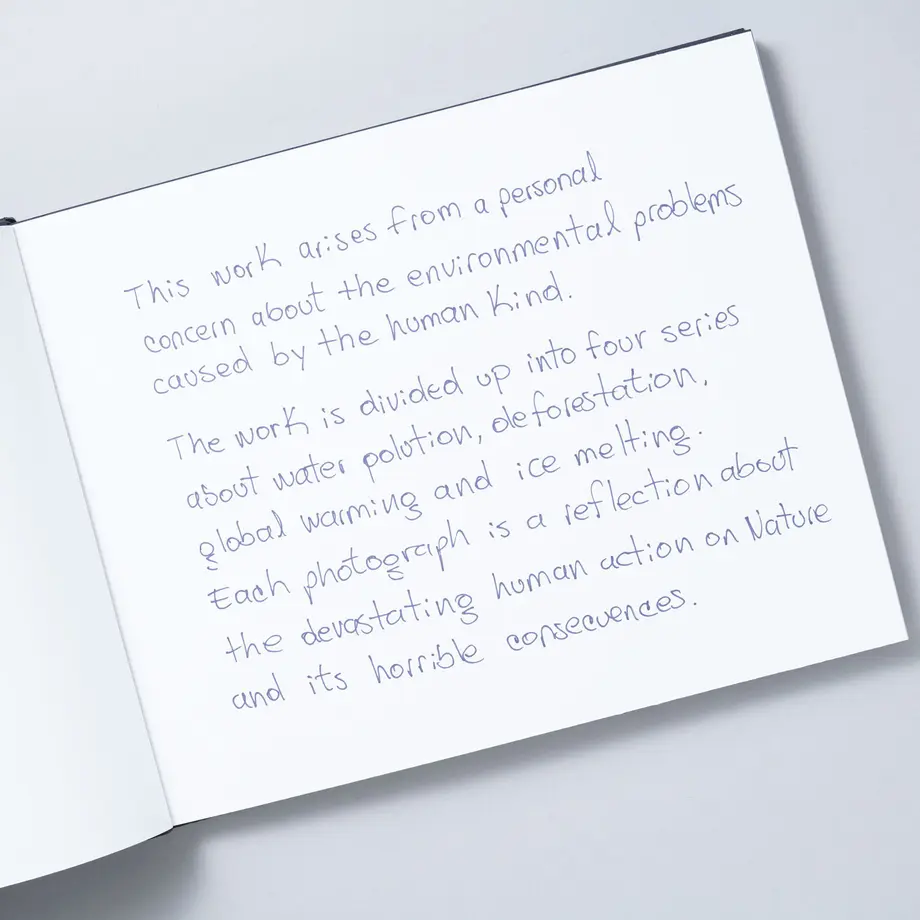 This work arises from a personal
concern about the environmental problems
caused by the human Kind.
The work is divided up into four series
about water polution, deforestation,
global warming and ice melting.
Each photograph is a reflection about
the devastating human action on Nature
and its horrible consecuences.